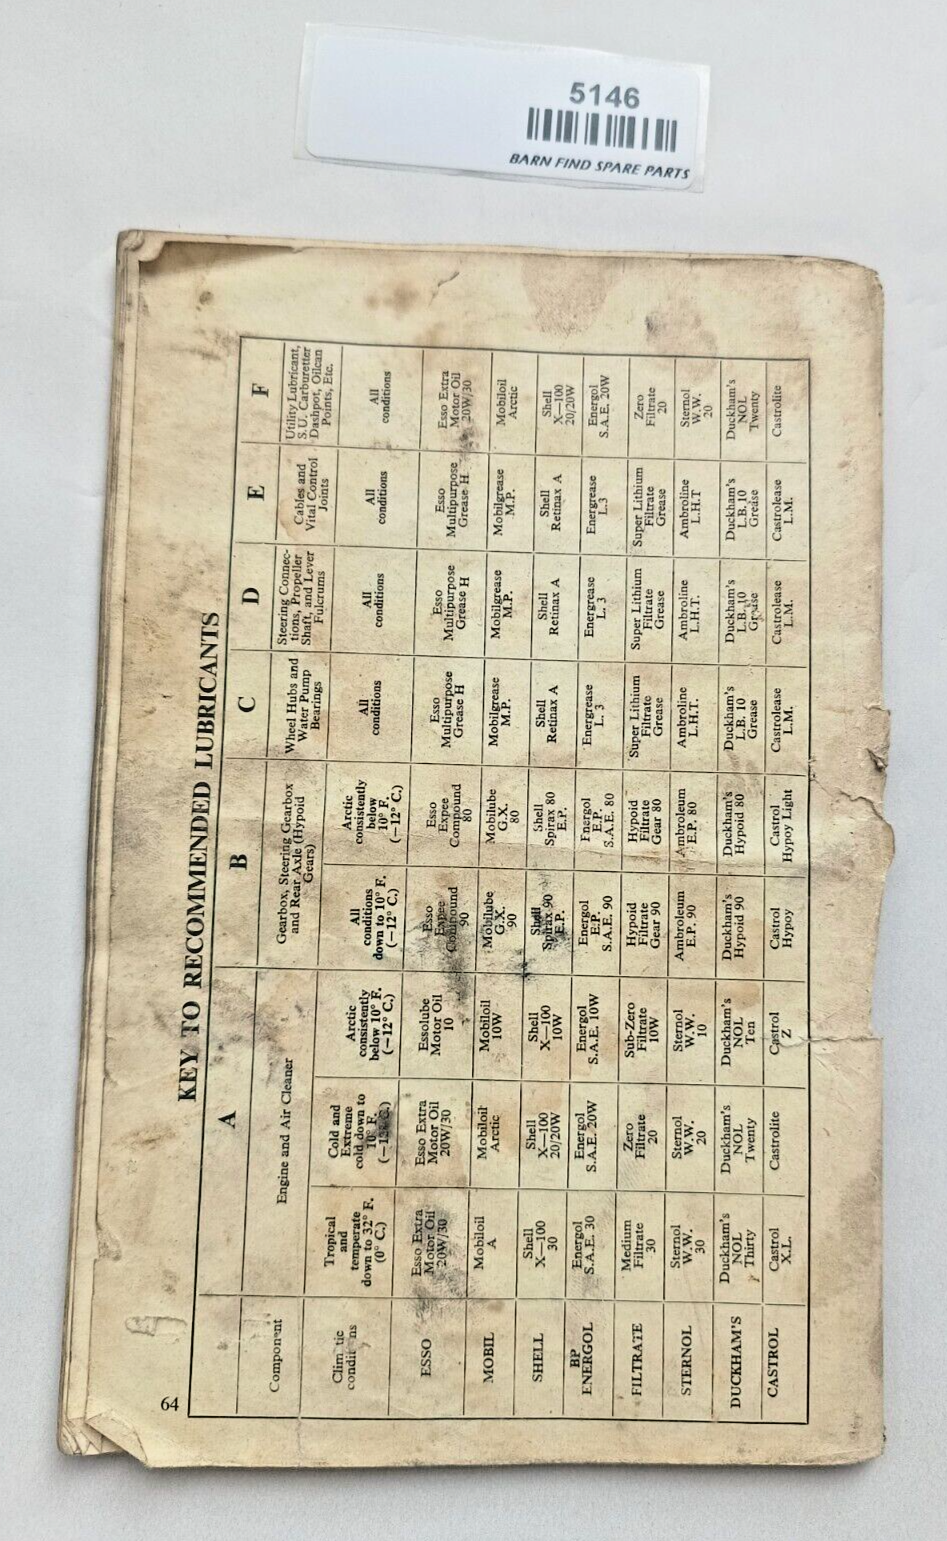 5146
BARN FIND SPARE PARTS
64
KEY TO RECOMMENDED LUBRICANTS
A
B
C
D
E
F
Component
Engine and Air Cleaner
Gearbox, Steering Gearbox
and Rear Axle (Hypoid
Gears)
Wheel Hubs and
Water Pump
Bearings
Steering Connec-
tions, Propeller
Shaft, and Lever
Fulcrums
Cables and
Vital Control
Joints
Utility Lubricant,
S.U. Carburetter
Dashpot, Oilcan
Points, Etc.
Tropical
and
temperate
down to 32° F.
(0° C.)
Cold and
Extreme
cold down to
10° F.
Arctic
consistently
below 10° F.
(—12° C.)
All
conditions
down to 10° F.
(—12° C.)
Arctic
consistently
below
10° F.
(—12° C.)
All
conditions
All
conditions
All
conditions
All
conditions
ESSO
Esso Extra
Motor Oil
20W/30
Esso Extra
Motor Oil
20W/30
Essolube
Motor Oil
10
Esso
Expee
Compound
90
Esso
Expee
Compound
80
Esso
Multipurpose
Grease H
Esso
Multipurpose
Grease H
Esso
Multipurpose
Grease H
Esso Extra
Motor Oil
20W/30
MOBIL
Mobiloil
A
Mobiloil
Arctic
Mobiloil
10W
Mobilube
G.X.
90
Mobilube
G.X.
80
Mobilgrease
M.P.
Mobilgrease
M.P.
Mobilgrease
M.P.
Mobiloil
Arctic
SHELL
Shell
X—100
30
Shell
X—100
20/20W
Shell
X—100
10W
Shell
Spirax 90
E.P.
Shell
Spirax 80
E.P.
Shell
Retinax A
Shell
Retinax A
Shell
Retinax A
Shell
X—100
20/20W
BP
ENERGOL
Energol
S.A.E. 30
Energol
S.A.E. 20W
Energol
S.A.E. 10W
Energol
E.P.
S.A.E. 90
Energol
E.P.
S.A.E. 80
Energrease
L. 3
Energrease
L. 3
Energrease
L.3
Energol
S.A.E. 20W
FILTRATE
Medium
Filtrate
30
Zero
Filtrate
20
Sub-Zero
Filtrate
10W
Hypoid
Filtrate
Gear 90
Hypoid
Filtrate
Gear 80
Super Lithium
Filtrate
Grease
Super Lithium
Filtrate
Grease
Super Lithium
Filtrate
Grease
Zero
Filtrate
20
STERNOL
Sternol
W.W.
30
Sternol
W.W.
20
Sternol
W.W.
10
Ambroleum
E.P. 90
Ambroleum
E.P. 80
Ambroline
L.H.T.
Ambroline
L.H.T.
Ambroline
L.H.T
Sternol
W.W.
20
DUCKHAM'S
Duckham's
NOL
Thirty
Duckham's
NOL
Twenty
Duckham's
NOL
Ten
Duckham's
Hypoid 90
Duckham's
Hypoid 80
Duckham's
L.B. 10
Grease
Duckham's
L.B. 10
Grease
Duckham's
L.B. 10
Grease
Duckham's
NOL
Twenty
CASTROL
Castrol
X.L.
Castrolite
Castrol
Z
Castrol
Hypoy
Castrol
Hypoy Light
Castrolease
L.M.
Castrolease
L.M.
Castrolease
L.M.
Castrolite